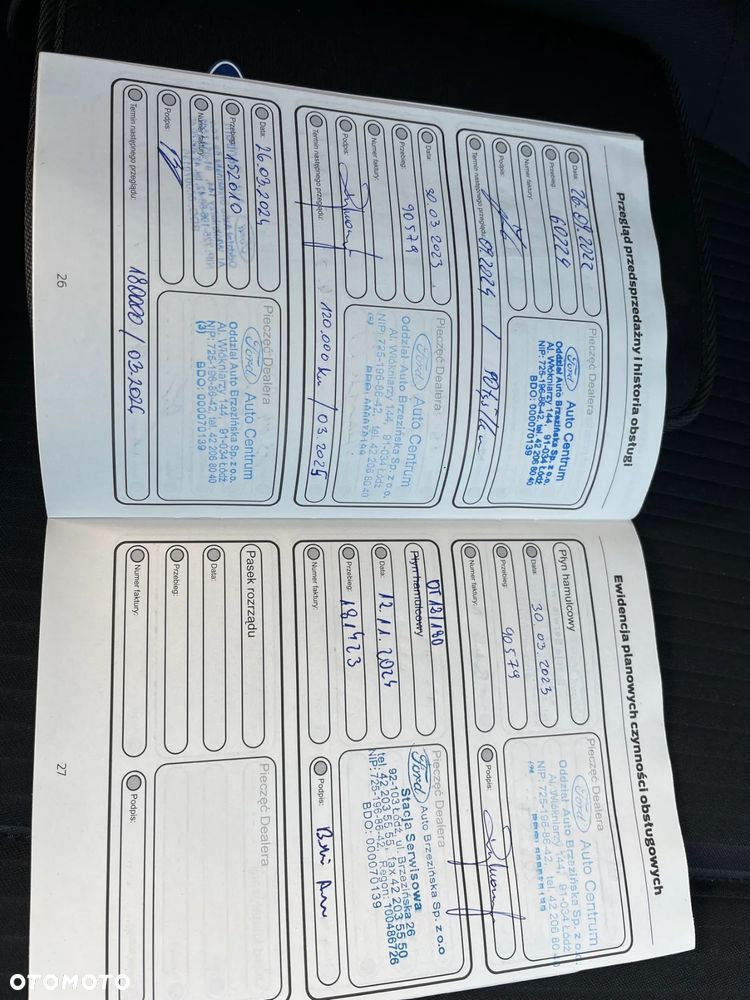 Przegląd przedsprzedażny i historia obsługi
Data: 26.09.2022
Przebieg: 60224
Numer faktury:
Podpis:
Termin następnego przeglądu: 09.2024 / 90
Pieczęć Dealera
Ford Auto Centrum
Oddział Auto Brzezińska Sp. z o.o.
Al. Włókniarzy 144, 91-034 Łódź
NIP: 725-196-86-42, tel. 42 206 80 40
BDO: 000070139
Data: 30.03.2023
Przebieg: 90579
Numer faktury:
Podpis:
Termin następnego przeglądu: 120.000 km / 03 2025
Pieczęć Dealera
Ford Auto Centrum
Oddział Auto Brzezińska Sp. z o.o.
Al. Włókniarzy 144, 91-034 Łódź
NIP: 725-196-86-42, tel. 42 206 80 40
Data: 26.03.2024
Przebieg: 152010
Numer faktury:
Podpis:
Termin następnego przeglądu: 180000 / 03.2026
Pieczęć Dealera
Ford Auto Centrum
Oddział Auto Brzezińska Sp. z o.o.
Al. Włókniarzy 144, 91-034 Łódź
NIP: 725-196-86-42, tel. 42 206 80 40
(3) BDO: 000070139
26
Ewidencja planowych czynności obsługowych
Płyn hamulcowy
Data: 30.03.2023
Przebieg: 90579
Numer faktury:
Pieczęć Dealera
Ford Auto Centrum
Oddział Auto Brzezińska Sp. z o.o.
Al. Włókniarzy 144, 91-034 Łódź
NIP: 725-196-86-42, tel. 42 206 80 40
Podpis:
OT 12/180
Płyn hamulcowy
Data: 12.11.2024
Przebieg: 181423
Numer faktury:
Pieczęć Dealera
Ford Auto Brzezińska Sp. z o.o
Stacja Serwisowa
92-103 Łódź, ul. Brzezińska 26
tel. 42 203 55 55, fax 42 203 55 50
NIP: 725-196-86-42, Regon: 100486726
BDO: 000070139
Podpis:
Pasek rozrządu
Data:
Przebieg:
Numer faktury:
Pieczęć Dealera
Podpis:
27
OTOMOTO